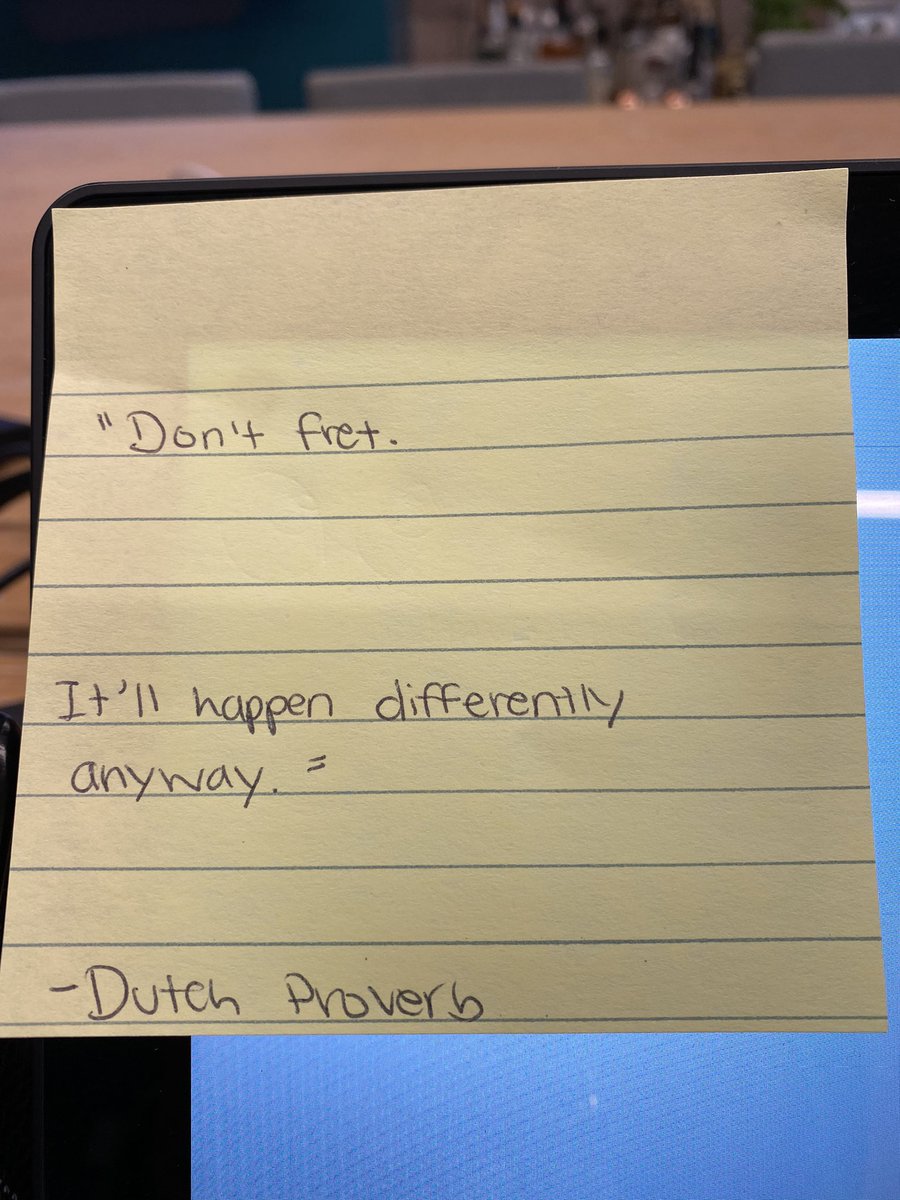 "Don't fret.
It'll happen differently
anyway."
-Dutch Proverb